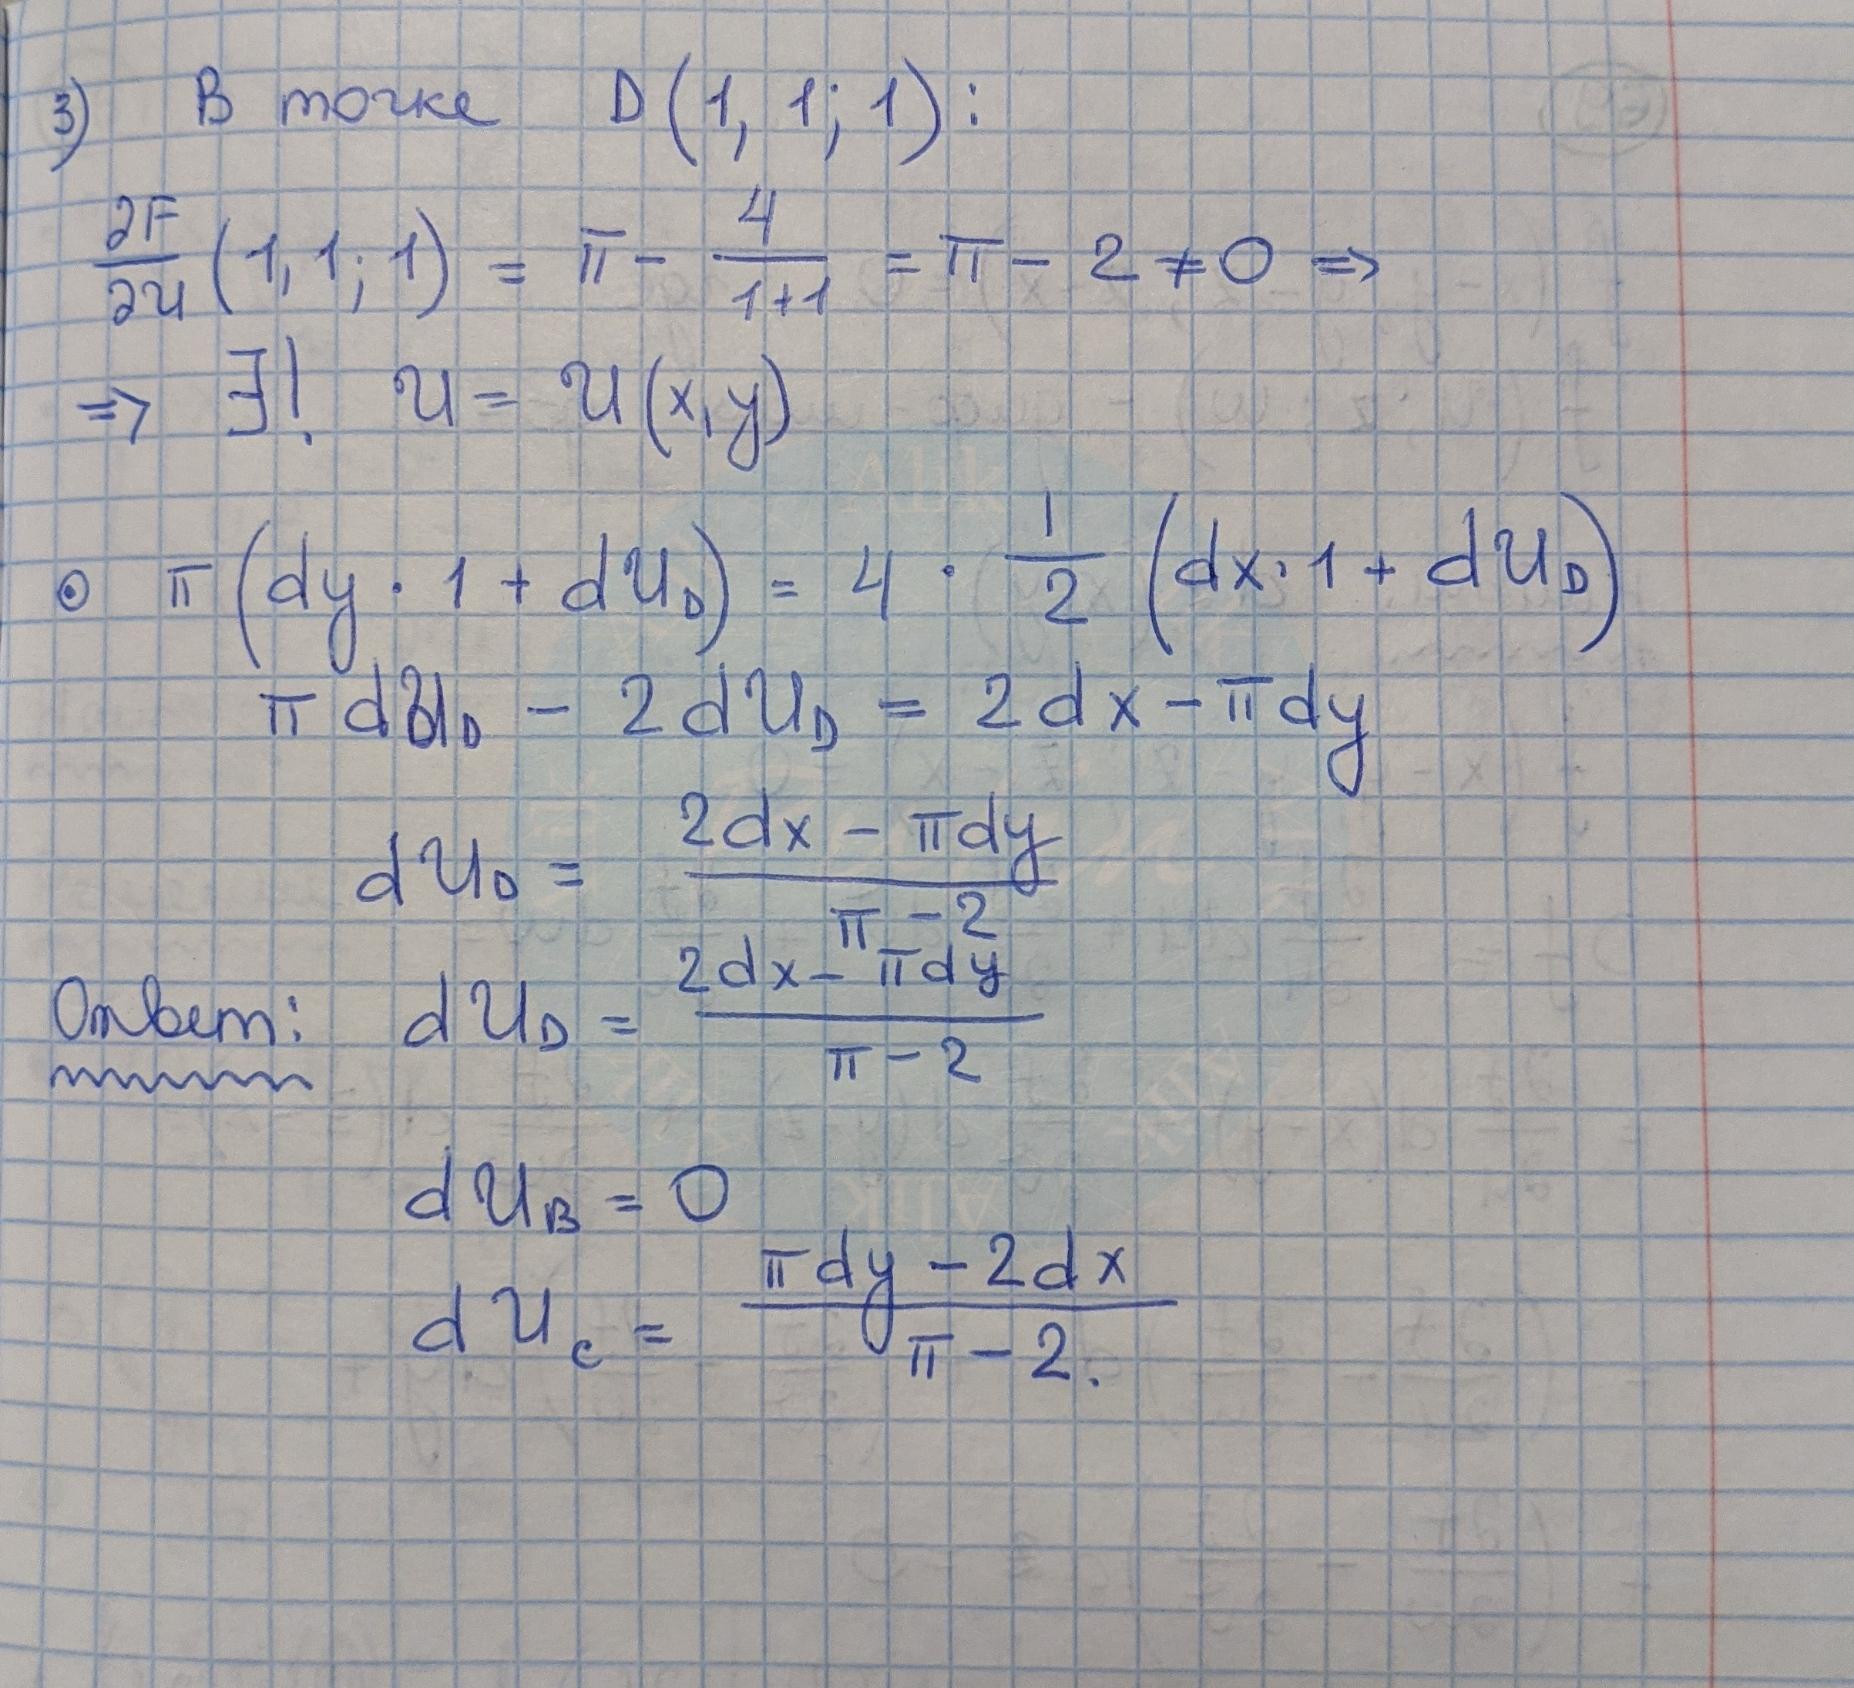 3) В точке D(1, 1; 1):
∂F/∂u (1, 1; 1) = π - 4/(1+1) = π - 2 ≠ 0 =>
=> ∃! u = u(x, y)
⊙ π(dy · 1 + du_D) = 4 · 1/2 (dx · 1 + du_D)
π du_D - 2 du_D = 2dx - π dy
du_D = (2dx - π dy)/(π - 2)
Ответ: du_D = (2dx - π dy)/(π - 2)
du_B = 0
du_C = (π dy - 2dx)/(π - 2).